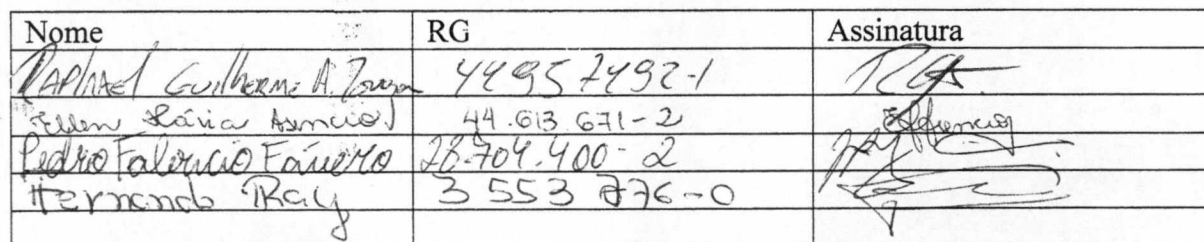 Nome RG Assinatura
Raphael Guilherme A. 44957492-1 RGA
Ellen Flávia Asencio 44.613.671-2
Pedro Falencio Faneiro 28.704.400-2
Hernando Ray 3 553 776-0